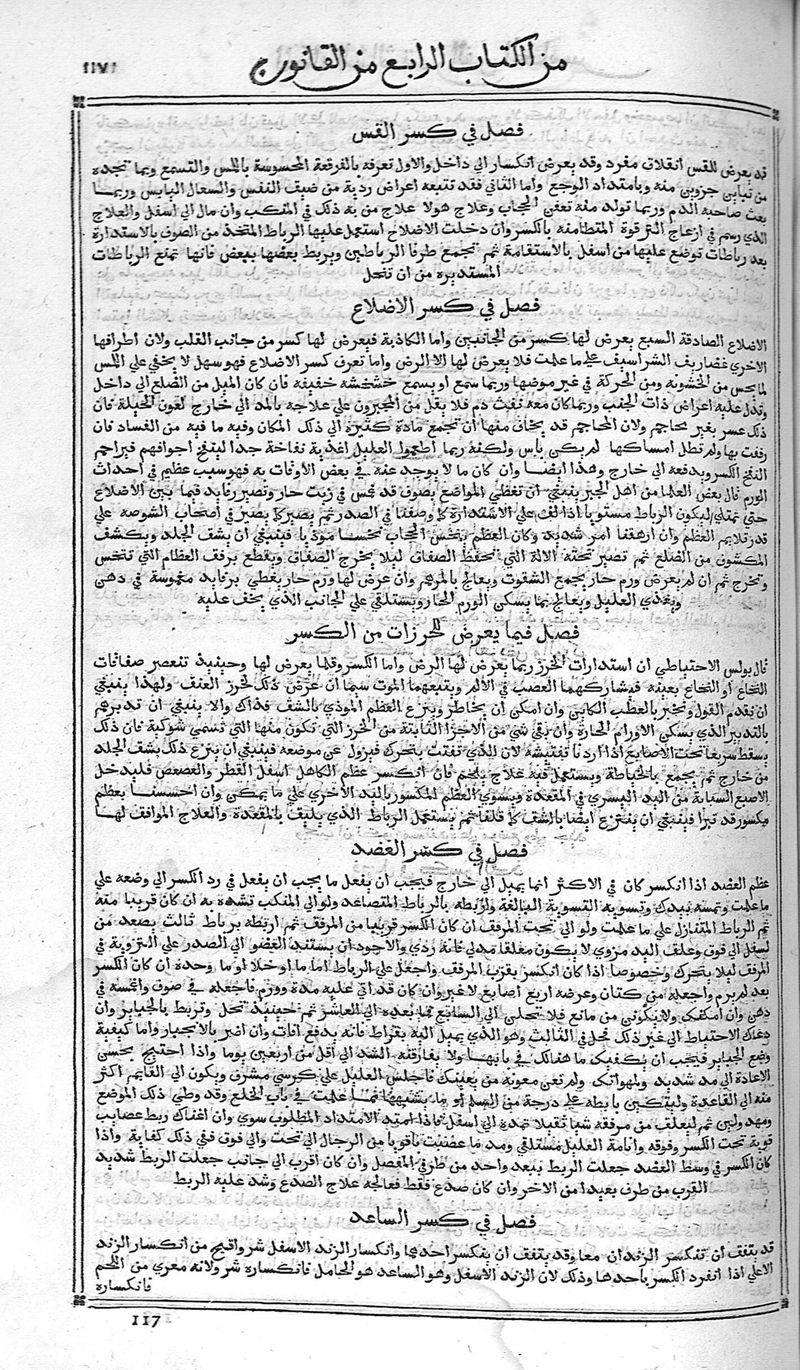 من الكتاب الرابع من القانون
١١٧
فصل في كسر القس
قد يعرض للقس انقلاق مفرد وقد يعرض انكسار الي داخل والاول تعرفه بالفرقعة المحسوسة باللمس والتسمع وبما تجده
من تباين جزوين منه وبامتداد الوجع واما الثاني فقد تتبعه اعراض ردية من ضيق النفس والسعال اليابس وربما
بعث صاحبه الدم وربما تولد منه تعفن الحجاب وعلاج هولا علاج من به ذلك في المنكب وان مال الي اسفل والعلاج
الذي رسم في ازعاج الترقوة المتطامنه بالكسر وان دخلت الاضلاع استعمل عليها الرباط المتخذ من الصوف بالاستدارة
بعد رباطات توضع عليها من اسفل بالاستقامة ثم تجمع طرفا الرباطين ويربط بعضها ببعض فانها تمنع الرباطات
المستديره من ان تنحل
فصل في كسر الاضلاع
الاضلاع الصادقة السبع يعرض لها كسر من الجانبين واما الكاذبة فيعرض لها كسر من جانب القلب ولان اطرافها
الاخري غضاريف الشراسيف علي ما علمت فلا يعرض لها الا الرض واما تعرف كسر الاضلاع فهو سهل لا يخفي علي اللمس
لما يحس من الخشونه ومن الحركة في غير موضعها وربما سمع او يسمع خشخشه خفيفه فان كان الميل من الضلع الي داخل
وتدل عليه اعراض ذات الجنب وربما كان معه نفث دم فلا يقبل من المجبرون علي علاجه بالمد الي خارج لعون الحيلة فان
ذلك عسر بغير محاجم ولان المحاجم قد يخاف منها ان تجمع مادة كثيرة الي ذلك المكان وفيه ما فيه من الفساد فان
رفعت بها ولم تطل امساكها لم يكن باس ولكنه ربما اطعموا العليل اغذية نفاخة جدا لينفخ اجوافهم فيزاحم
النفخ الكسر ويدفعه الي خارج وهذا ايضا وان كان ما لا يوجد عنه في بعض الاوقات به فهو سبب عظيم في احداث
الورم قال بعض العلما من اهل الجبر ينبغي ان تغطي المواضع بصوف قد غمس في زيت حار وتصير رفايد فيما بين الاضلاع
حتي تمتلي ليكون الرباط مستويا اذا لف علي الاستدارة كما وصفنا في الصدر ثم يصير كما يصير في اصحاب الشوصه علي
قدر تلايهم العظم وان ارهقنا امر شديد وكان العظم ينخس الحجاب نخسا موذيا فينبغي ان يشق الجلد ويكشف
المكشون من الضلع ثم تصير تحته الالة التي تحفظ الصفاق ليلا يخرج الصفاق ويقطع برفق العظام التي تنخس
وتخرج ثم ان لم يعرض ورم حار يجمع الشقوق ويعالج بالمرهم وان عرض لها ورم حار يغطي برفايد مغموسة في دهن
ويغذي العليل ويعالج بما يسكن الورم الحار ويستلقي علي الجانب الذي يخف عليه
فصل فيما يعرض للخرزات من الكسر
قال بولس الاحتياطي ان استدارات الخرز ربما يعرض لها الرض واما الكسر وقلما يعرض لها وحينيذ تنعصر صفاقات
النخاع او النخاع بعينه فيشاركهما العصب في الالم ويتبعهما الموت سيما ان عرض ذلك لخرز العنق ولهذا ينبغي
ان نقدم القول ونخبر بالعطب الكاين وان امكن ان يخاطر وينزع العظم الموذي بالشق فذاك والا ينبغي ان تدبرهم
بالتدبير الذي يسكن الاورام الحارة وان بقي شي من الاجزا الثابتة من الخرز التي تكون منها التي تسمي شوكية فان ذلك
يسقط سريعا تحت الاصابع اذا اردنا تفتيشه لان الذي تفتت يتحرك فيزول عن موضعه فينبغي ان ينزع ذلك بشق الجلد
من خارج ثم يجمع بالخياطة ويستعمل فيه علاج يلحم فان انكسر عظم الكاهل اسفل القطن والعصعص فليدخل
الاصبع السبابة من اليد اليسري في المقعدة ويسوي العظم المكسور باليد الاخري علي ما يمكن وان احسسنا بعظم
مكسور قد تبرا فينبغي ان ينتزع ايضا بالشق كما قلنا ثم يستعمل الرباط الذي يليق بالمقعدة والعلاج الموافق لها
فصل في كسر العضد
عظم العضد اذا انكسر كان في الاكثر انما يميل الي خارج فيجب ان يفعل ما يجب ان يفعل في رد الكسر الي وضعه علي
ما علمت وتمسه بيدك وتسويه التسوية البالغة واربطه بالرباط المتصاعد ولو الي المنكب تشده به ان كان قريبا منه
ثم الرباط المتنازل علي ما علمت ولو الي تحت المرفق ان كان الكسر قريبا من المرفق ثم اربطه برباط ثالث يصعد من
اسفل الي فوق وعلق اليد مزوي لا يكون معلقا مدلي فانه ردي والاجود ان يستند العضو الي الصدر علي التزوية في
المرفق ليلا يتحرك وخصوصا اذا كان انكسر بقرب المرفق واجعل علي الرباط اما ما او خلا او ما وحده ان كان الكسر
بعد لم يرم واجعله من كتان وعرضه اربع اصابع لا غير وان كان قد اتي عليه مدة وورم فاجعله في صوف واغمسه في
دهن وان امكنك ولا يكون من مانع فلا تحلي الي السابع فما بعده الي العاشر ثم حينيذ تحل وتربط بالجباير وان
دعاك الاحتياط الي غير ذلك فحل في الثالث وهو الذي يميل اليه بقراط فانه يدفع افات وان اضر بالانجبار واما كيفية
وضع الجباير فيجب ان يكفيك ما هنالك في بابها ولا يفارقنه الشد الي اقل من اربعين يوما واذا احتيج بحسن
الاعادة الي مد شديد ولمهواتك ولم تغن معونة من يعينك فاجلس العليل علي كرسي مشرف ويكون الي القايم اكثر
منه الي القاعدة وليتكين بابطه علي درجة من السلم او ما يشبهها مما علمت في باب الخلع وقد وطي ذلك الموضع
ومهد ولين ثم ليعلق من مرفقه شيا ثقيلا تمده الي اسفل فاذا امتد الامتداد المطلوب سوي وان اغناك ربط عصايب
قوية تحت الكسر وفوقه وانامة العليل مستلقي ومد ما عصبت ناقويا من الرجال الي تحت والي فوق ففي ذلك كفاية واذا
كان الكسر في وسط العضد جعلت الربط ببعد واحد من طرفي المفصل وان كان اقرب الي جانب جعلت الربط شديد
القرب من طرف بعيدا من الاخر وان كان صدع فقط فعالجه علاج الصدع وشد عليه الربط
فصل في كسر الساعد
قد يتفق ان تنكسر الزندان معا وقد يتفق ان ينكسر احدهما وانكسار الزند الاسفل شر واقبح من انكسار الزند
الاعلي اذا انفرد الكسر باحدها وذلك لان الزند الاسفل وهو الساعد هو الحامل فانكساره شر ولانه معري من اللحم
فانكساره
117